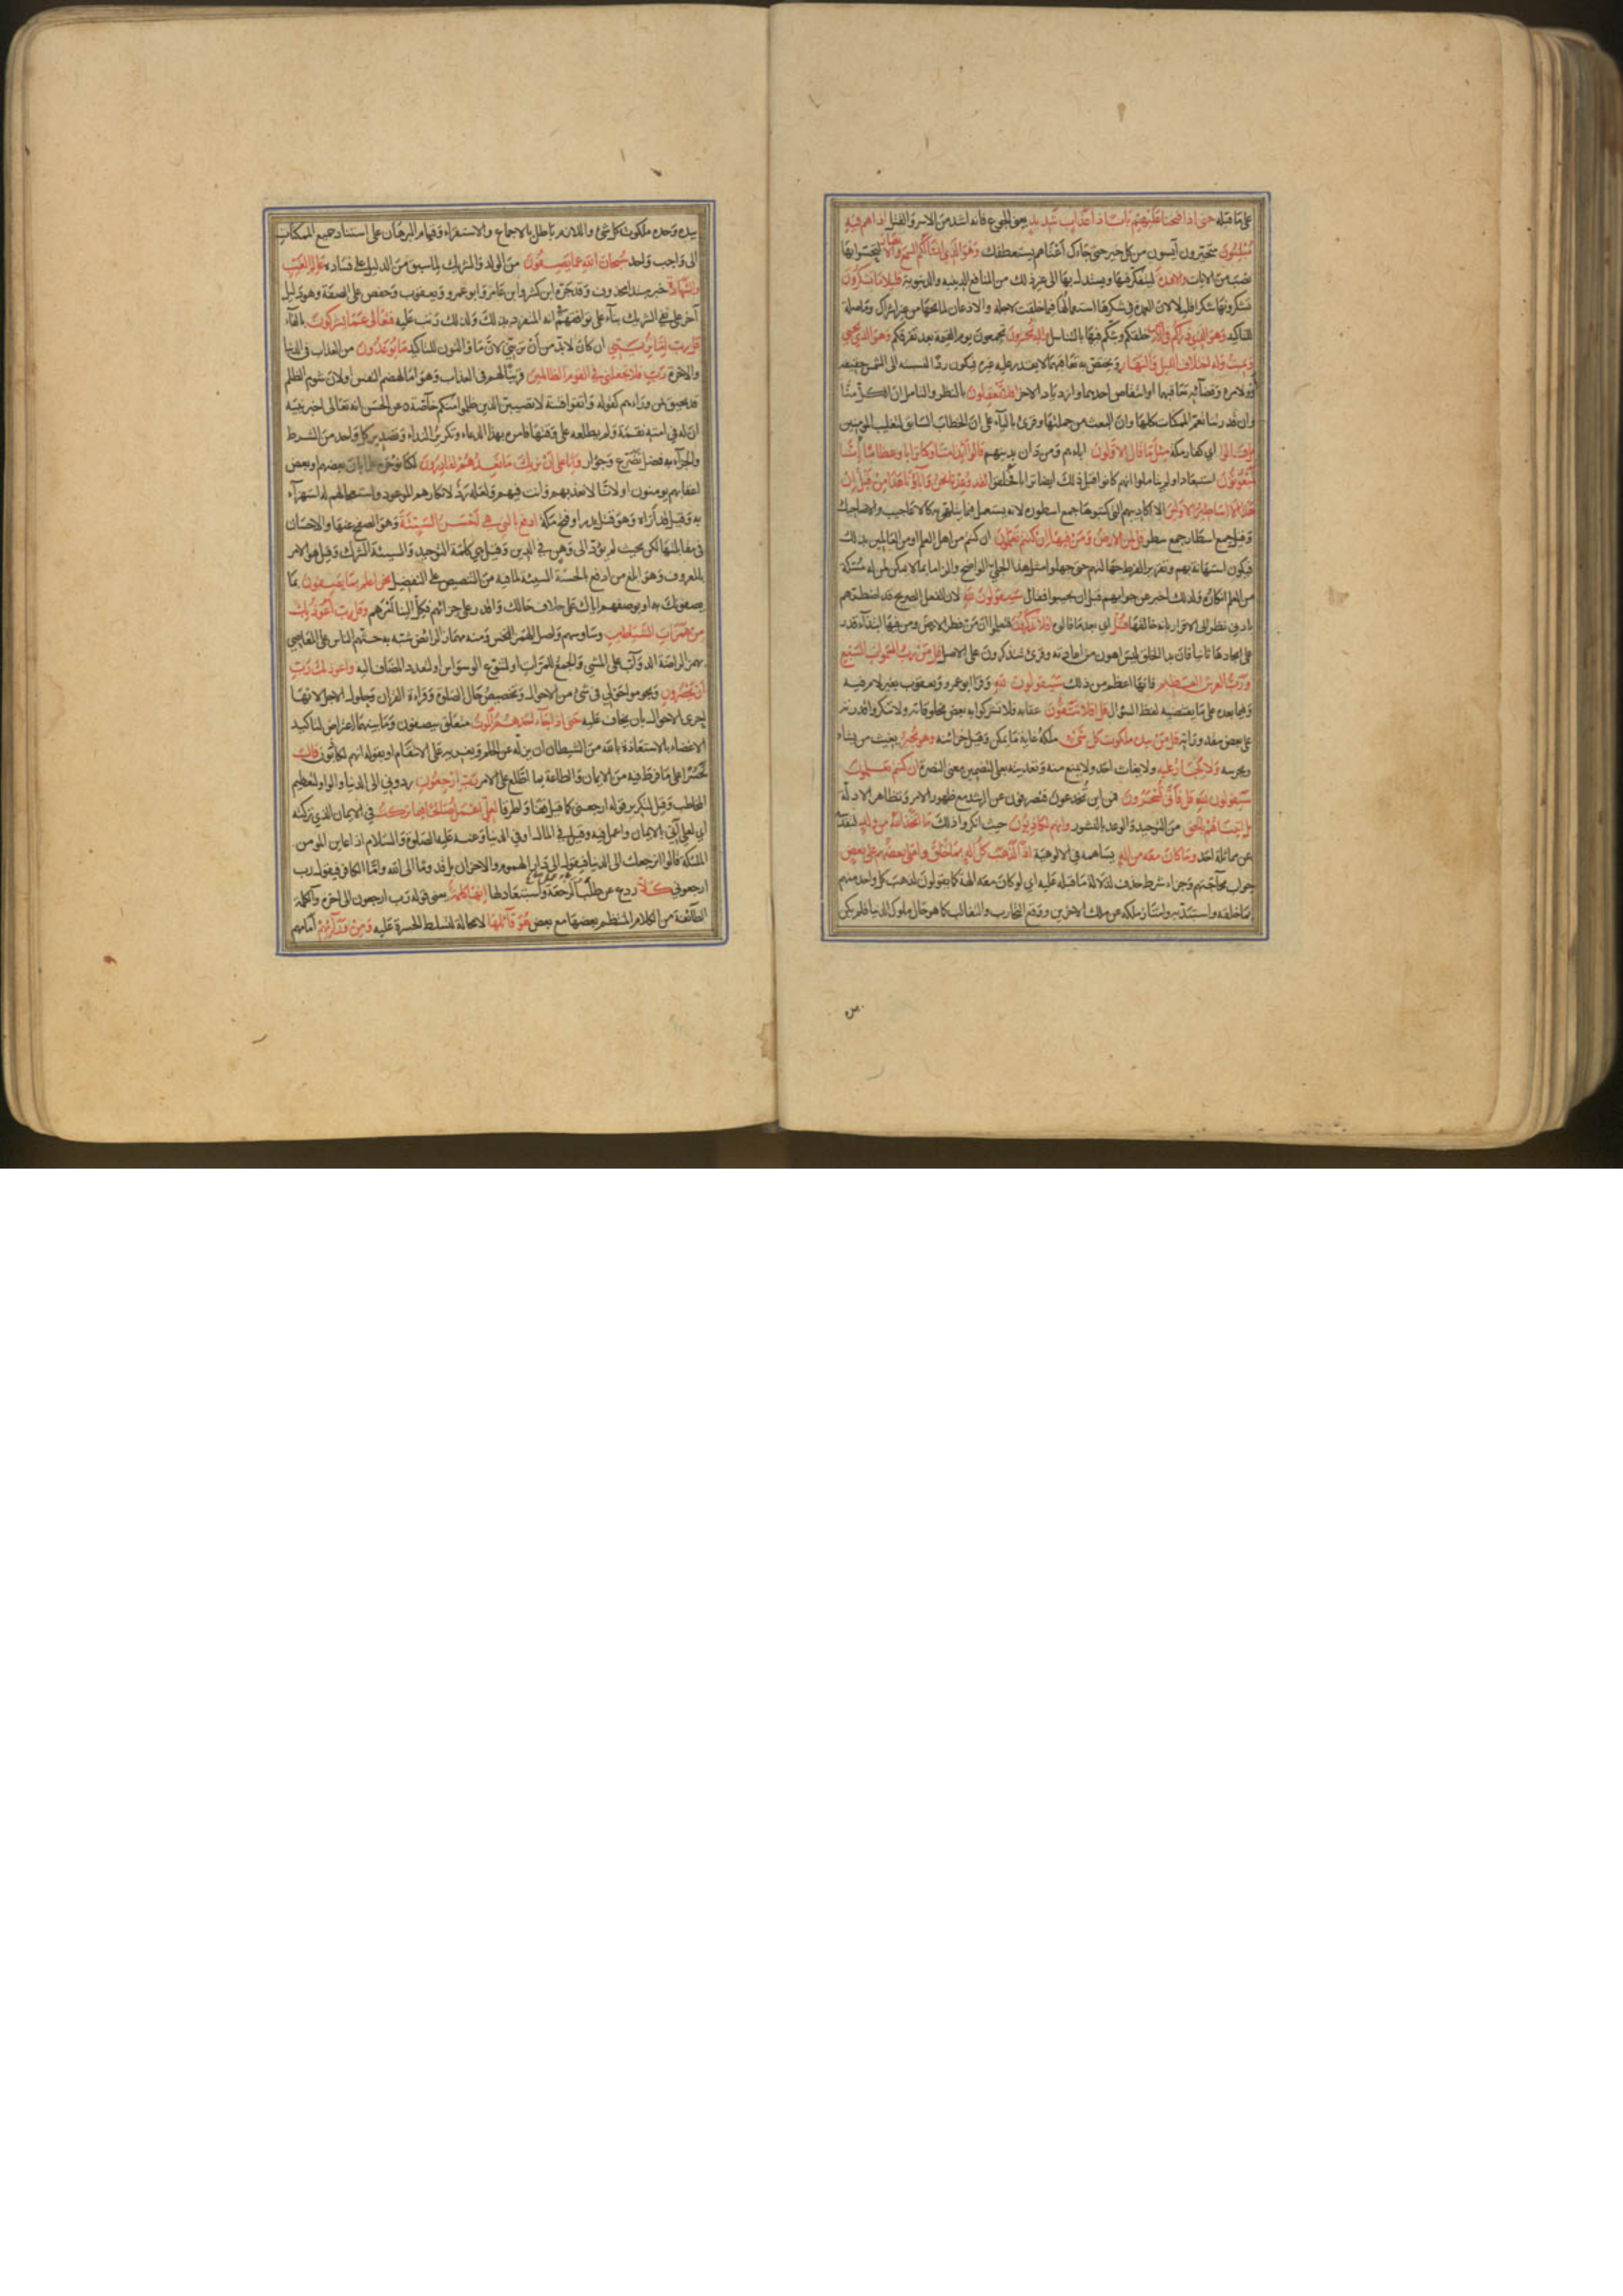 على ما قبله حتى اذا فتحنا عليهم بابا ذا عذاب شديد يعنى الجوع فانه اشد من الاسر والقتل اذا هم فيه
مبلسون متحيرون آيسون من كل خير حتى جاءك اعتاهم يستعطفك وهو الذى انشا لكم السمع والابصار لتحسوا بها
نصب من الآيات والافئدة لتتفكروا فيها وتستدلوا بها الى غير ذلك من المنافع الدينية والدنيوية قليلا ما تشكرون
تشكرونها شكرا قليلا لان العمدة فى شكرها استعمالها فيما خلقت لاجله والاذعان لمانحها من غير اشراك وما صلة
للتاكيد وهو الذى ذراكم فى الارض خلقكم وبثكم فيها بالتناسل واليه تحشرون تجمعون يوم القيمة بعد تفرقكم وهو الذى يحيى
ويميت وله اختلاف الليل والنهار ويختص به تعاقبهما لا يقدر عليه غيره فيكون ردا لنسبته الى الشمس حقيقة
او لامره وقضائه تعاقبهما او انتقاص احدهما وازدياد الاخر افلا تعقلون بالنظر والتامل ان الكل منا
وان قدرتنا تعم الممكنات كلها وان البعث من جملتها وقرئ بالياء على ان الخطاب السابق لتغليب المؤمنين
بل قالوا اى كفار مكة مثل ما قال الاولون آباءهم ومن دان بدينهم قالوا ائذا متنا وكنا ترابا وعظاما ائنا
لمبعوثون استبعادا ولم يتاملوا انهم كانوا قبل ذلك ايضا ترابا فخلقوا لقد وعدنا نحن وآباؤنا هذا من قبل ان
هذا الا اساطير الاولين الا اكاذيبهم التى كتبوها جمع اسطورة لانه يستعمل فيما يتلهى به كالاعاجيب والاضاحيك
وقيل جمع اسطار جمع سطر قل لمن الارض ومن فيها ان كنتم تعلمون ان كنتم من اهل العلم او من العالمين بذلك
فيكون استهانة بهم وتقريرا لفرط جهالتهم حتى جهلوا مثل هذا الجلى الواضح والزاما بما لا يمكن لمن له مسكة
من العلم انكاره ولذلك اخبر عن جوابهم قبل ان يجيبوا فقال سيقولون لله لان العقل الصريح قد اضطرهم
بادنى نظر الى الاقرار بانه خالقها قل اى بعد ما قالوه افلا تذكرون فتعلموا ان من فطر الارض ومن فيها ابتداء قدر
على ايجادها ثانيا فان بدا الخلق ليس اهون من اعادته وقرئ تتذكرون على الاصل قل من رب السموات السبع
ورب العرش العظيم فانها اعظم من ذلك سيقولون لله وقرا ابو عمرو ويعقوب بغير لام فيه
وفيما بعده على ما يقتضيه لفظ السؤال قل افلا تتقون عقابه فلا تشركوا به بعض مخلوقاته ولا تنكروا قدرته
على بعض مقدوراته قل من بيده ملكوت كل شئ ملكه غاية ما يمكن وقيل خزائنه وهو يجير يغيث من يشاء
ويحرسه ولا يجار عليه ولا يغاث احد ولا يمنع منه وتعديته بعلى لتضمين معنى النصرة ان كنتم تعلمون
سيقولون لله قل فانى تسحرون فمن اين تخدعون فتصرفون عن الرشد مع ظهور الامر وتظاهر الادلة
بل اتيناهم بالحق من التوحيد والوعد بالنشور وانهم لكاذبون حيث انكروا ذلك ما اتخذ الله من ولد لتقدسه
عن مماثلة احد وما كان معه من اله يساهمه فى الالوهية اذا لذهب كل اله بما خلق ولعلا بعضهم على بعض
جواب محاجتهم وجزاء شرط حذف لدلالة ما قبله عليه اى لو كان معه الهة كما يقولون لذهب كل واحد منهم
بما خلقه واستبد به وامتاز ملكه عن ملك الاخرين ووقع التحارب والتغالب كما هو حال ملوك الدنيا فلم يكن
بيده وحده ملكوت كل شئ واللازم باطل بالاجماع والاستقراء وقيام البرهان على استناد جميع الممكنات
الى واجب واحد سبحان الله عما يصفون من الولد والشريك لما سبق من الدليل على فساده عالم الغيب
والشهادة خبر مبتدا محذوف وقد جره ابن كثير وابن عامر وابو عمرو ويعقوب وحفص على الصفة وهو دليل
آخر على نفى الشريك بناء على توافقهم انه المنفرد بذلك ولذلك رتب عليه فتعالى عما يشركون بالفاء
قل رب اما ترينى ان كان لا بد من ان ترينى لان ما والنون للتاكيد ما يوعدون من العذاب فى الدنيا
والاخرة رب فلا تجعلنى فى القوم الظالمين قرينا لهم فى العذاب وهو اما لهضم النفس او لان شوم الظلم
قد يحيق بمن وراءهم كقوله واتقوا فتنة لا تصيبن الذين ظلموا منكم خاصة عن الحسن انه تعالى اخبر نبيه
ان له فى امته نقمة ولم يطلعه على وقتها فامره بهذا الدعاء وتكرير النداء وتصدير كل واحد من الشرط
والجزاء به فضل تضرع وجؤار وانا على ان نريك ما نعدهم لقادرون لكنا نؤخره علما بان بعضهم او بعض
اعقابهم يومنون او لانا لا نعذبهم وانت فيهم ولعله رد لانكارهم الموعود واستعجالهم له استهزاء
به وقيل قد اراه وهو قتل بدر او فتح مكة ادفع بالتى هى احسن السيئة وهو الصفح عنها والاحسان
فى مقابلتها لكن بحيث لم يؤد الى وهن فى الدين وقيل هى كلمة التوحيد والسيئة الشرك وقيل هو الامر
بالمعروف وهو ابلغ من ادفع بالحسنة السيئة لما فيه من التنصيص على التفضيل نحن اعلم بما يصفون بما
يصفونك به او بوصفهم اياك على خلاف حالك واقدر على جزائهم فكل الينا امرهم وقل رب اعوذ بك
من همزات الشياطين وساوسهم واصل الهمز النخس ومنه مهماز الرائض شبه به حثهم الناس على المعاصى
بهمز الراضة الدواب على المشى والجمع للمرات او لتنوع الوسواس او لتعدد المضاف اليه واعوذ بك رب
ان يحضرون ويحوموا حولى فى شئ من الاحوال وتخصيص حال الصلوة وقراءة القران وحلول الاجل لانها
احرى الاحوال بان يخاف عليه حتى اذا جاء احدهم الموت متعلق بيصفون وما بينهما اعتراض لتاكيد
الاغضاء بالاستعاذة بالله من الشيطان ان يزله عن الحلم ويغريه على الانتقام او بقوله انهم لكاذبون قال
تحسرا على ما فرط فيه من الايمان والطاعة لما اطلع على الامر رب ارجعون ردونى الى الدنيا والواو لتعظيم
المخاطب وقيل لتكرير قوله ارجعنى كما قيل قفا واطرقا لعلى اعمل صالحا فيما تركت فى الايمان الذى تركته
اى لعلى آتى بالايمان واعمل فيه وقيل فى المال او فى الدنيا وعنه عليه الصلوة والسلام اذا عاين المومن
الملئكة قالوا انرجعك الى الدنيا فيقول الى دار الهموم والاحزان بل قدوما الى الله واما الكافر فيقول رب
ارجعونى كلا ردع عن طلب الرجعة واستبعاد لها انها كلمة يعنى قوله رب ارجعون الى اخره والكلمة
الطائفة من الكلام المنتظم بعضها مع بعض هو قائلها لا محالة لتسلط الحسرة عليه ومن ورائهم امامهم